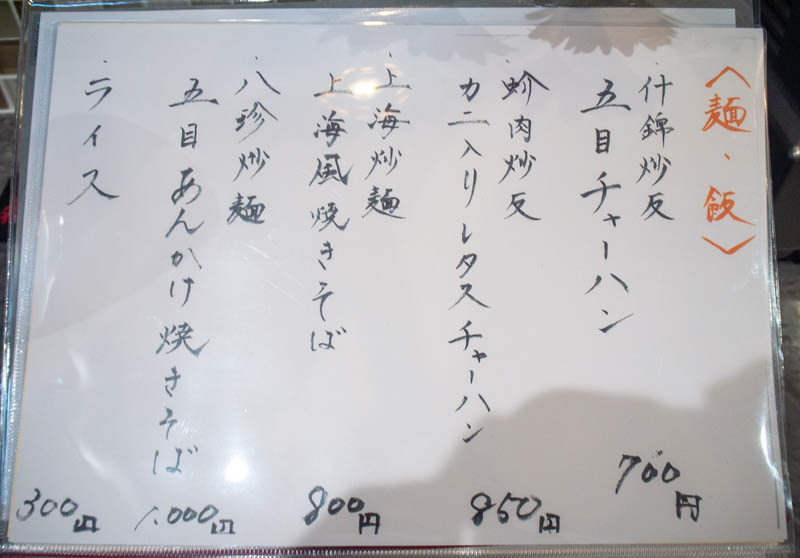 〈麺、飯〉
、什錦炒反
五目チャーハン
700円
、蚧肉炒反
カニ入りレタスチャーハン
850円
、上海炒麺
上海風焼きそば
800円
、八珍炒麺
五目あんかけ焼きそば
1.000円
、ライス
300円